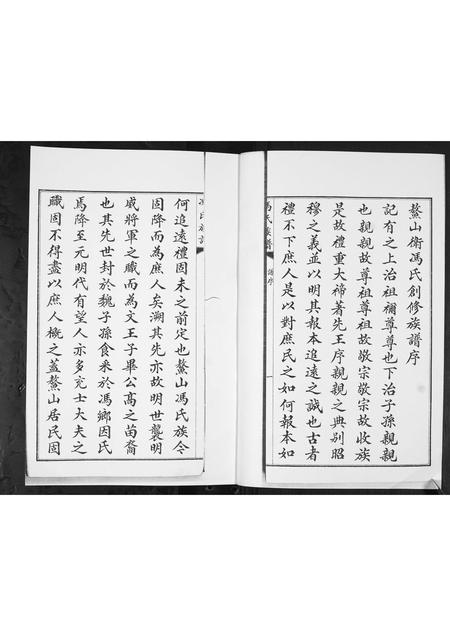 鰲山衛馮氏創修族譜序
記有之上治祖禰尊尊也下治子孫親親
也親親故尊祖尊祖故敬宗敬宗故收族
是故禮重大禘著先王序親親之典別昭
穆之義並以明其報本追遠之誠也古者
禮不下庶人是以對庶民之如何報本如
馮氏族譜
譜序
何追遠禮固未之前定也鰲山馮氏族令
固降而為庶人矣溯其先亦故明世襲明
威將軍之職而為文王子畢公高之苗裔
也其先世封於魏子孫食釆於馮鄉因氏
焉降至元明代有望人亦多充士大夫之
職固不得盡以庶人概之蓋鰲山居民固
馮氏族譜